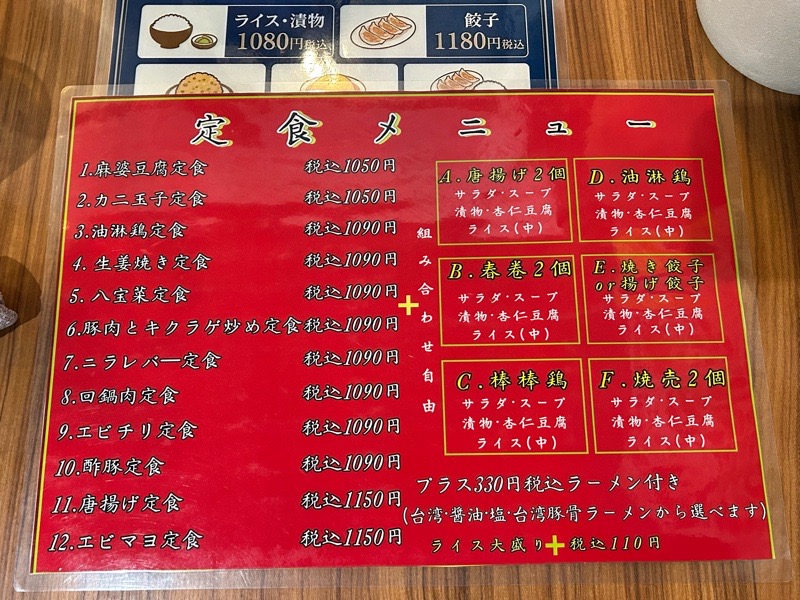 ライス・漬物
1080円税込
餃子
1180円税込
定食メニュー
1.麻婆豆腐定食 税込1050円
2.カニ玉子定食 税込1050円
3.油淋鶏定食 税込1090円
4.生姜焼き定食 税込1090円
5.八宝菜定食 税込1090円
6.豚肉とキクラゲ炒め定食 税込1090円
7.ニラレバー定食 税込1090円
8.回鍋肉定食 税込1090円
9.エビチリ定食 税込1090円
10.酢豚定食 税込1090円
11.唐揚げ定食 税込1150円
12.エビマヨ定食 税込1150円
+
組み合わせ自由
A.唐揚げ2個
サラダ・スープ
漬物・杏仁豆腐
ライス(中)
D.油淋鶏
サラダ・スープ
漬物・杏仁豆腐
ライス(中)
B.春巻2個
サラダ・スープ
漬物・杏仁豆腐
ライス(中)
E.焼き餃子
or揚げ餃子
サラダ・スープ
漬物・杏仁豆腐
ライス(中)
C.棒棒鶏
サラダ・スープ
漬物・杏仁豆腐
ライス(中)
F.焼売2個
サラダ・スープ
漬物・杏仁豆腐
ライス(中)
プラス330円税込ラーメン付き
(台湾・醤油・塩・台湾豚骨ラーメンから選べます)
ライス大盛り+税込110円